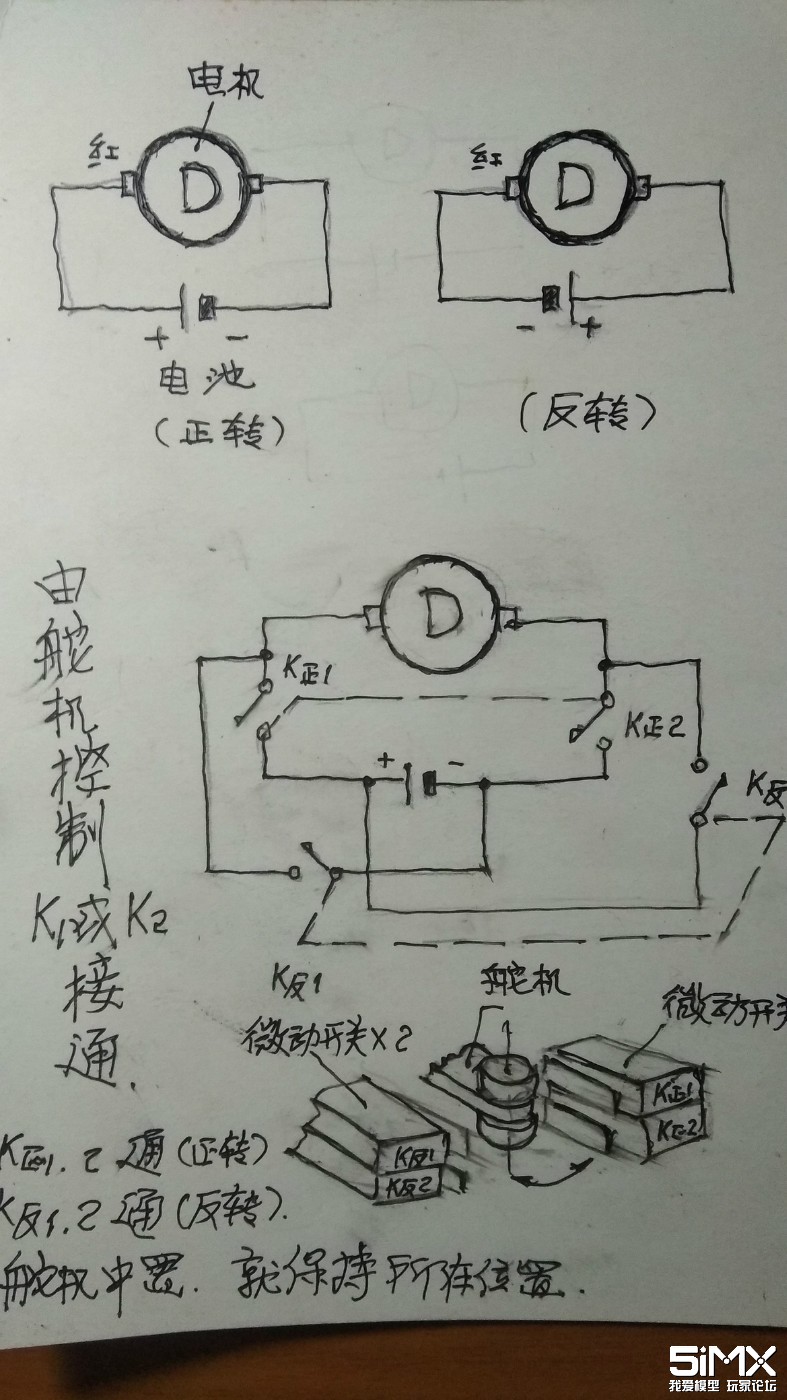 电机
红
D
+ -
电池
(正转)
红
D
- +
(反转)
由舵机控制K1或K2接通.
D
K正1
K正2
+ -
K反
K反1
舵机
微动开关×2
微动开关
K正1
K正2
K反1
K反2
K正1.2通(正转)
K反1.2通(反转).
舵机中置.就保持所在位置.
5iMX
我爱模型 玩家论坛